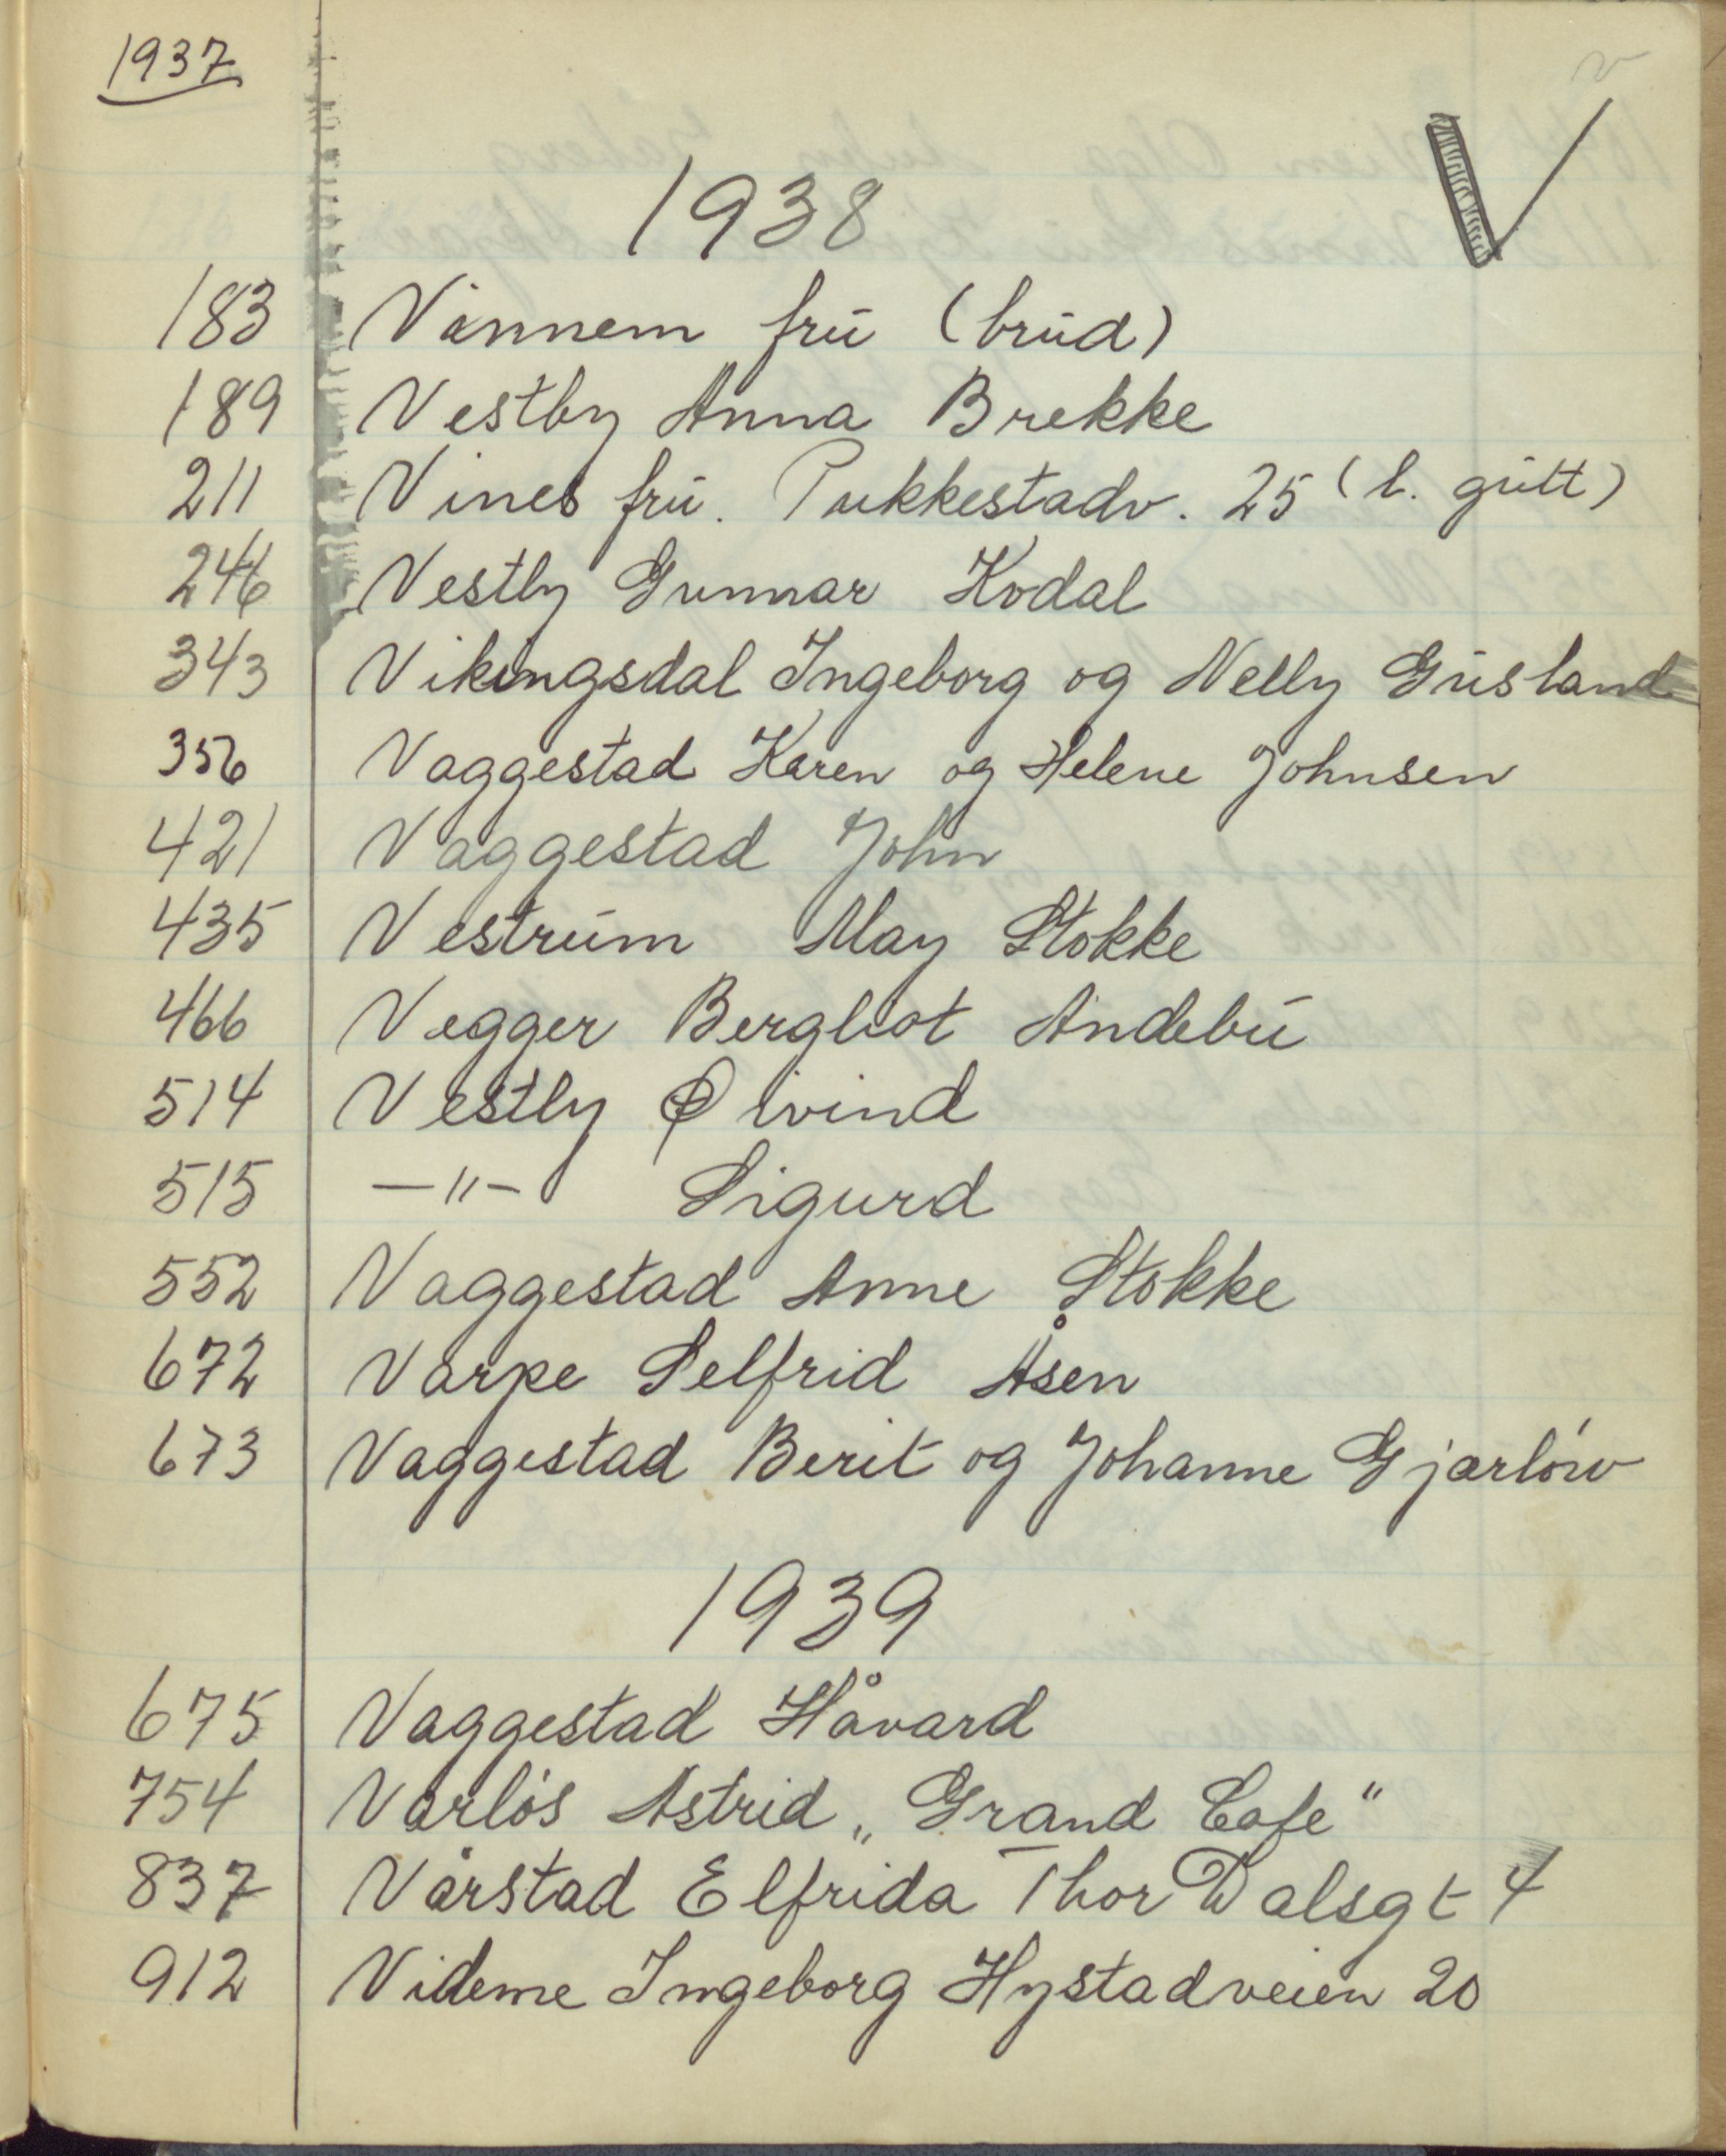 1937
v
V
1938
183 Vannem frú (brúd)
189 Vestby Anna Brekke
211 Vines frú. Pukkestadv. 25 (l. gútt)
246 Vestby Gunnar Kodal
343 Vikingsdal Ingeborg og Nelly Gúsland
356 Vaggestad Karen og Helene Johnsen
421 Vaggestad John
435 Vestrúm May Stokke
466 Vegger Bergliot Andebú
514 Vestby Øivind
515 —"— Sigurd
552 Vaggestad Anne Stokke
672 Varpe Selfrid Åsen
673 Vaggestad Berit og Johanne Gjarlów
1939
675 Vaggestad Håvard
754 Varlós Astrid „Grand Cafe"
837 Vårstad Elfrida Thor Dalsgt 4
912 Videme Ingeborg Hystadveien 20